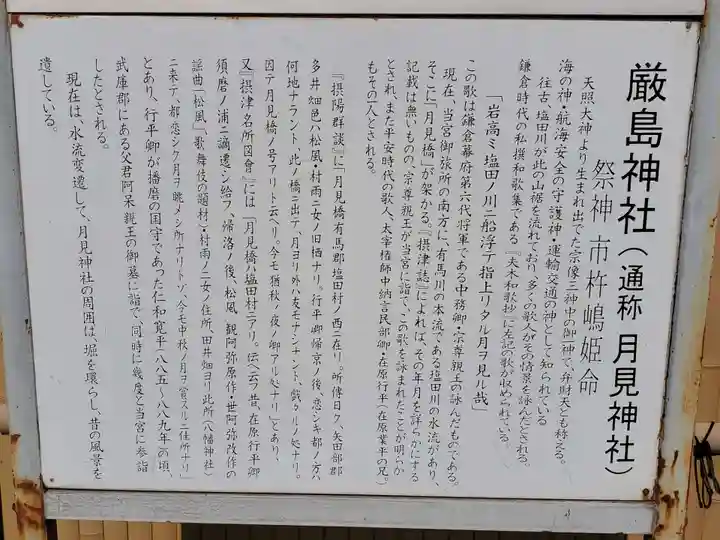 厳島神社（通称 月見神社）
祭神 市杵嶋姫命
天照大神より生まれ出でた宗像三神中の御一神で、弁財天とも称える。
海の神・航海安全の守護神・運輸交通の神として知られている
往古、塩田川が此の山裾を流れており、多くの歌人がその情景を詠んだとされる。
鎌倉時代の私撰和歌集である『夫木和歌抄』に左記の歌が収められている。
「岩高ミ塩田ノ川ニ船浮テ指上リタル月ヲ見ル哉」
この歌は鎌倉幕府第六代将軍である中務卿・宗尊親王の詠んだものである。
現在、当宮御旅所の南方に、有馬川の本流である塩田川の水流があり、
そこに「月見橋」が架かる。『摂津誌』によれば、その年月を詳らかにする
記載は無いものの、宗尊親王が当宮に詣で、この歌を詠まれたことが明らか
とされ、また平安時代の歌人、太宰権師中納言民部卿・在原行平（在原業平の兄）
もその一人とされる。
『摂陽群談』に「月見橋有馬郡塩田村ノ西ニ在リ。所傳曰ク、矢田部郡
多井畑邑ハ松風・村雨二女ノ旧栖ナリ。行平卿帰京ノ後、恋シキ都ノ方ハ
何地ナラント、此ノ橋ニ出テ、月ヨリ外ハ友モナシナント、戯ケルノ処ナリ。
因テ月見橋ノ号アリト云ヘリ。今モ猶秋ノ夜ノ卿アル処ナリ」とあり、
又『摂津名所圖會』には「月見橋ハ塩田村ニアリ。伝ヘ云フ、昔、在原行平卿
須磨ノ浦ニ謫遷シ給フ、帰洛ノ後、松風、観阿弥原作・世阿弥改作の
謡曲「松風」、歌舞伎の題材）・村雨ノ二女ノ住所、田井畑ヨリ此所（八幡神社）
ニ来テ、都恋シク月ヲ眺メシ所ナリトゾ、今モ中秋ノ月ヲ賞スルニ佳所ナリ」
とあり、行平卿が播磨の国守であった仁和寛平（八八五～八八九年）の頃、
武庫郡にある父君阿呆親王の御墓に詣で、同時に幾度と当宮に参詣
したとされる。
現在は、水流変遷して、月見神社の周囲は、堀を環らし、昔の風景を
遺している。